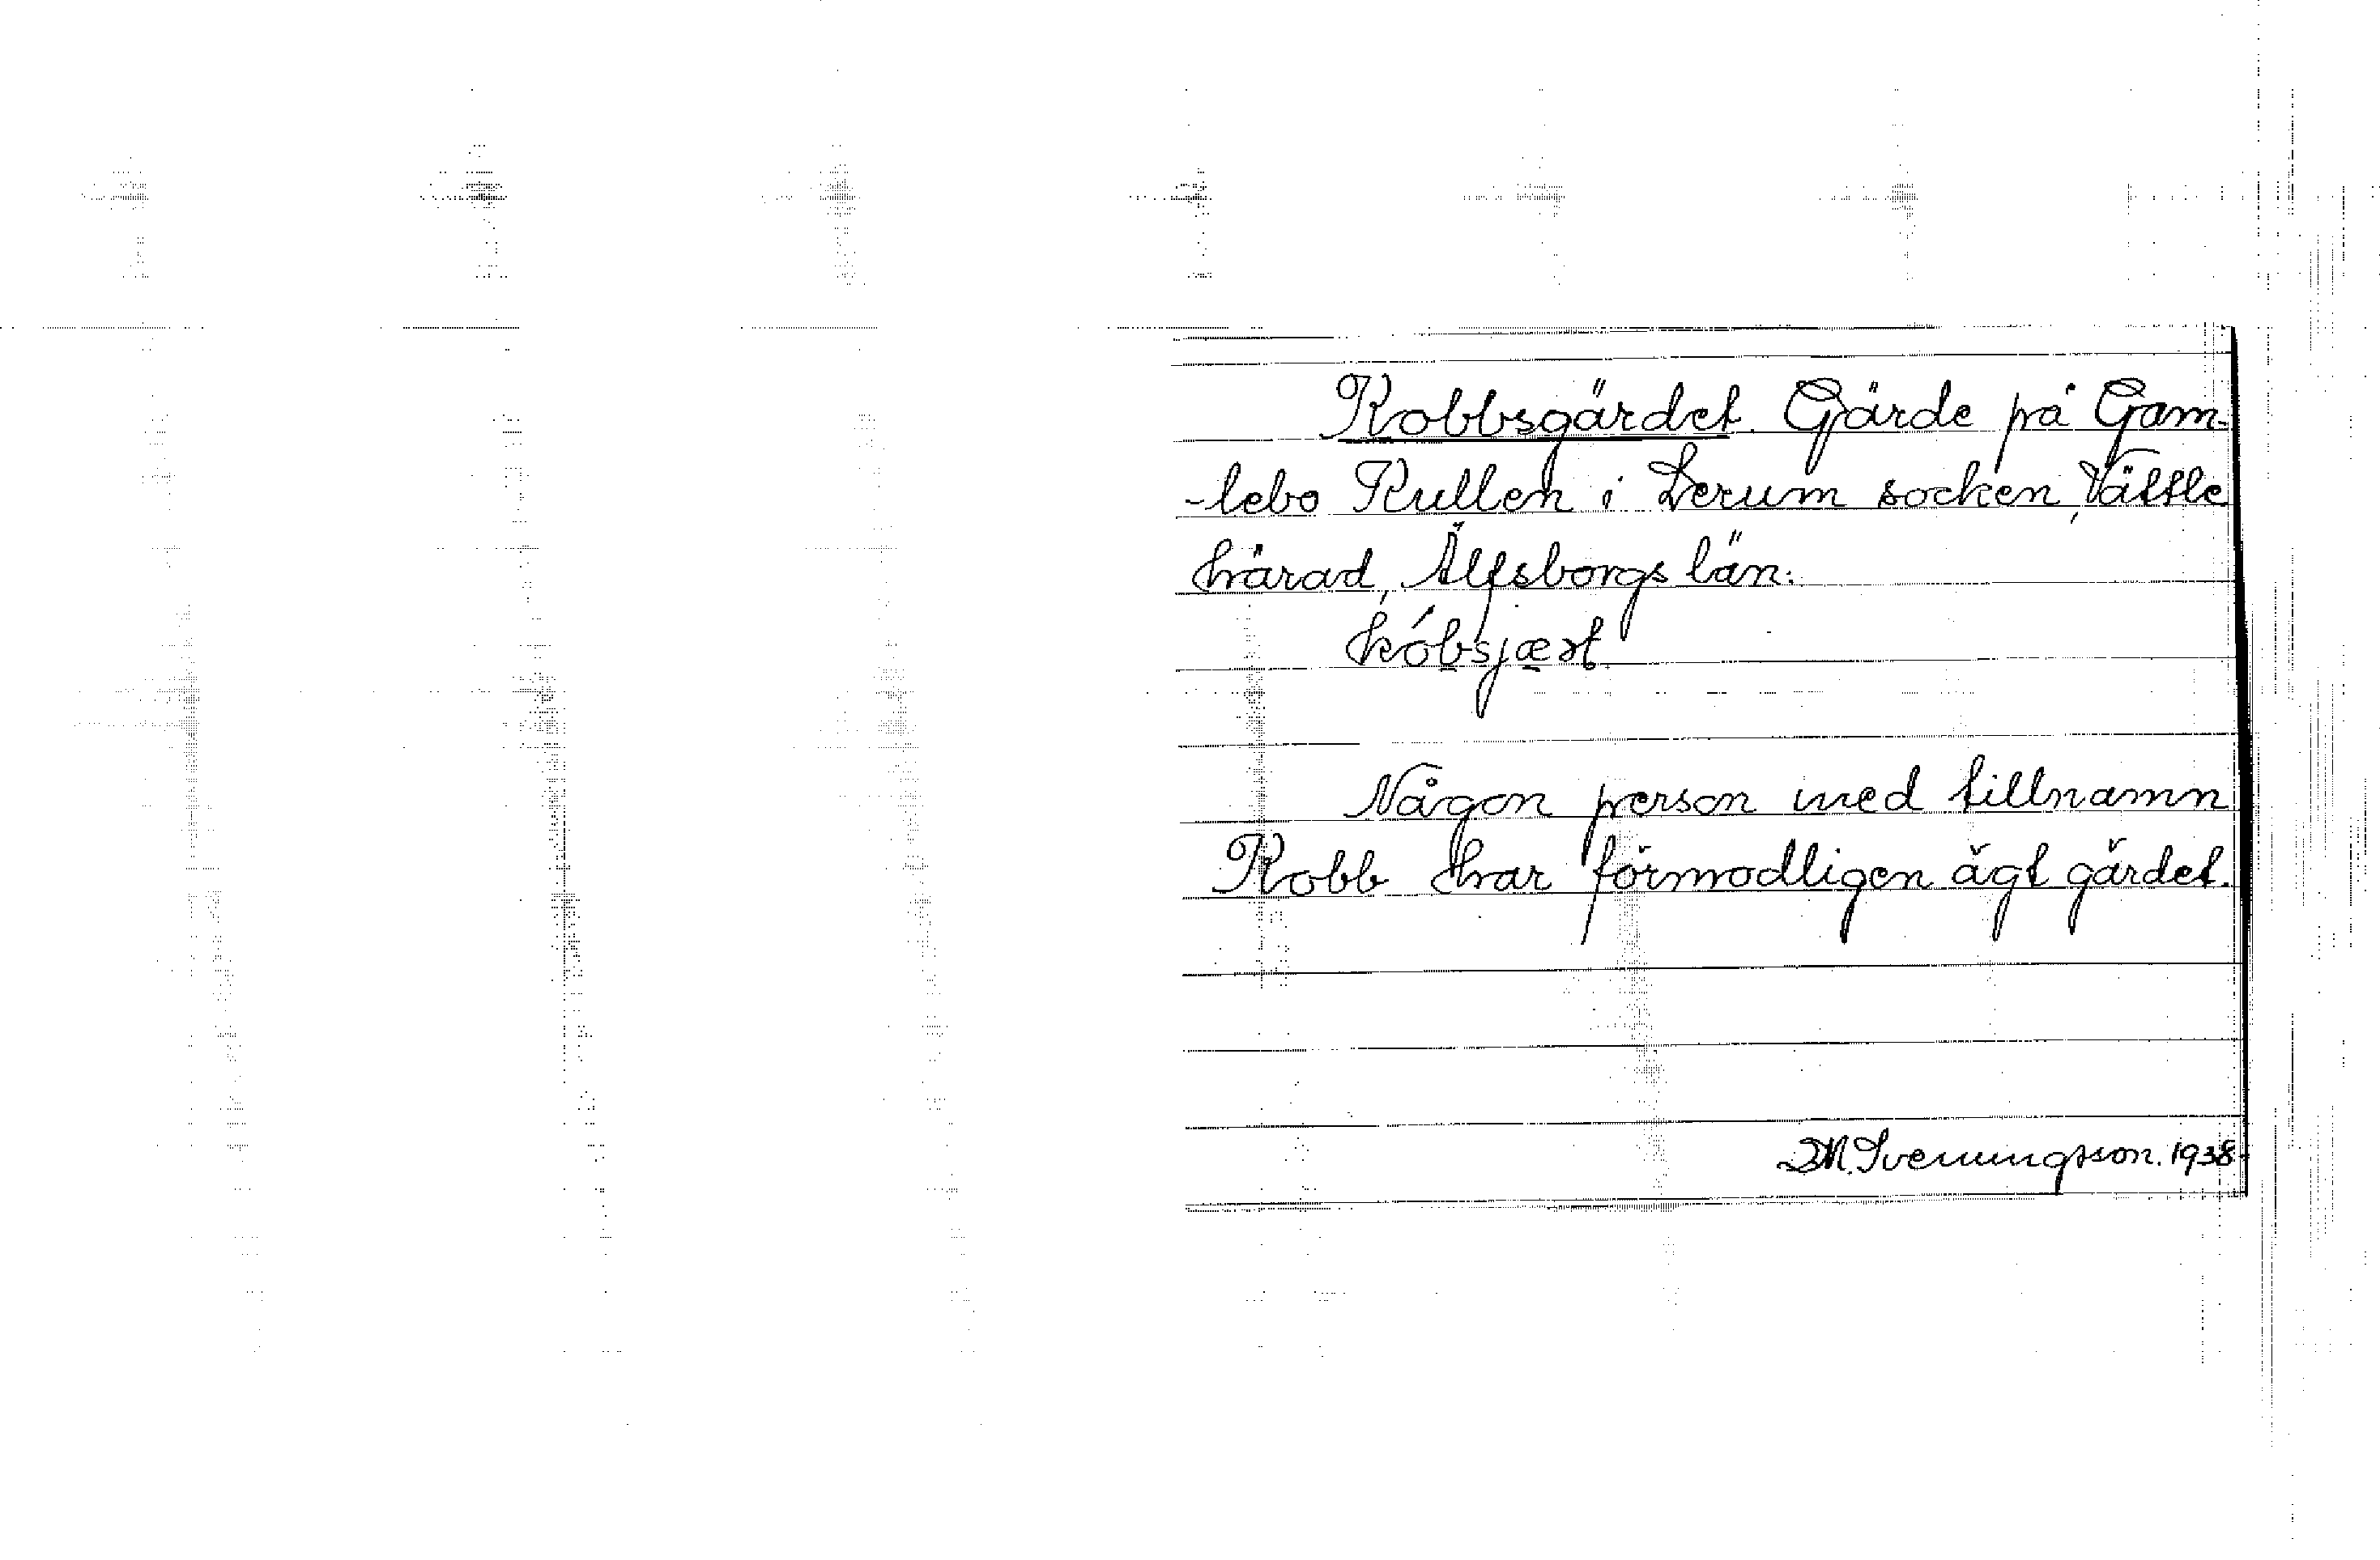 Kobbsgärdet. Gärde på Gam-
-lebo Kullen i Lerum socken, Vättle
härad, Älfsborgs län.
kóbsjæɽt.
Någon person med tillnamn
Kobb har förmodligen ägt gärdet.
D.M. Svenningsson. 1938.